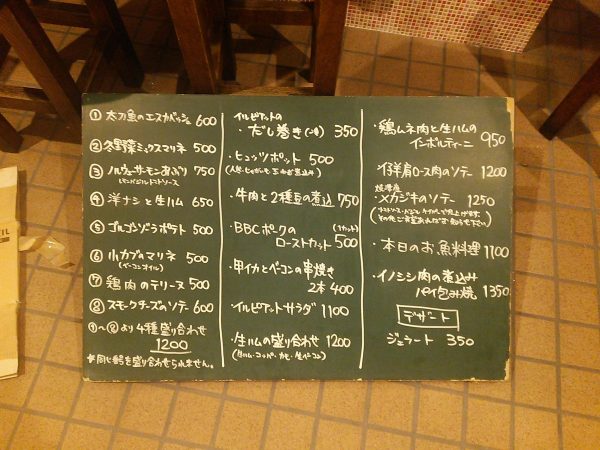 ① 太刀魚のエスカベッシュ 600
② 冬野菜ミックスマリネ 500
③ ノルウェーサーモンあぶり 750
(レモンバジルトマトソース)
④ 洋ナシと生ハム 650
⑤ ゴルゴンゾラポテト 500
⑥ 小カブのマリネ 500
(ベーコンオイル)
⑦ 鶏肉のテリーヌ 500
⑧ スモークチーズのソテー 600
①〜⑧より4種盛り合わせ
1200
※同じ番号を盛り合わせられません。
イルピアットの
・だし巻き 350
・ヒュッツポット 500
・牛肉と2種豆の煮込 750
・BBCポークの
ローストカット 500
(1カット)
・甲イカとベーコンの串焼き
2本 400
・イルピアットサラダ 1100
・生ハムの盛り合わせ 1200
・鶏ムネ肉と生ハムの
インボルティーニ 950
・仔羊肩ロース肉のソテー 1200
・メカジキのソテー 1250
・本日のお魚料理 1100
・イノシシ肉の煮込み
パイ包み焼 1350
デザート
ジェラート 350